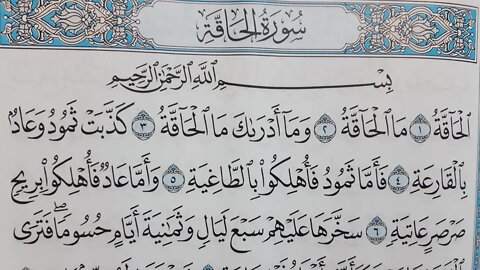 سُورَةُ الْحَاقَّةِ
بِسْمِ اللَّهِ الرَّحْمَٰنِ الرَّحِيمِ
الْحَاقَّةُ ١ مَا الْحَاقَّةُ ٢ وَمَا أَدْرَىٰكَ مَا الْحَاقَّةُ ٣ كَذَّبَتْ ثَمُودُ وَعَادٌ
بِالْقَارِعَةِ ٤ فَأَمَّا ثَمُودُ فَأُهْلِكُوا بِالطَّاغِيَةِ ٥ وَأَمَّا عَادٌ فَأُهْلِكُوا بِرِيحٍ
صَرْصَرٍ عَاتِيَةٍ ٦ سَخَّرَهَا عَلَيْهِمْ سَبْعَ لَيَالٍ وَثَمَٰنِيَةَ أَيَّامٍ حُسُومًا ۖ فَتَرَى